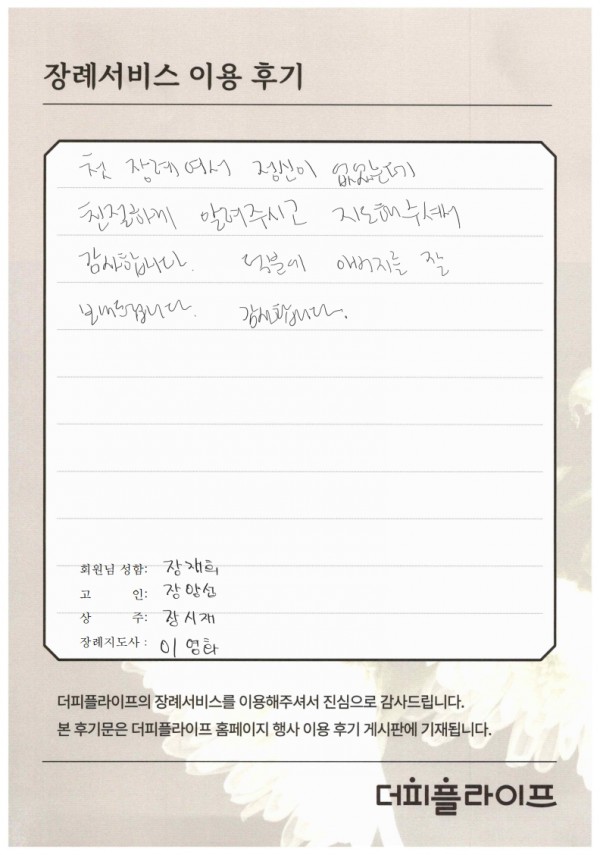 장례서비스 이용 후기
첫 장례여서 정신이 없었는데
친절하게 알려주시고 지도해주셔서
감사합니다. 덕분에 아버지를 잘
보내드립니다. 감사합니다.
회원님 성함: 장재희
고 인: 장양선
상 주: 장시재
장례지도사 : 이영화
더피플라이프의 장례서비스를 이용해주셔서 진심으로 감사드립니다.
본 후기문은 더피플라이프 홈페이지 행사 이용 후기 게시판에 기재됩니다.
더피플라이프